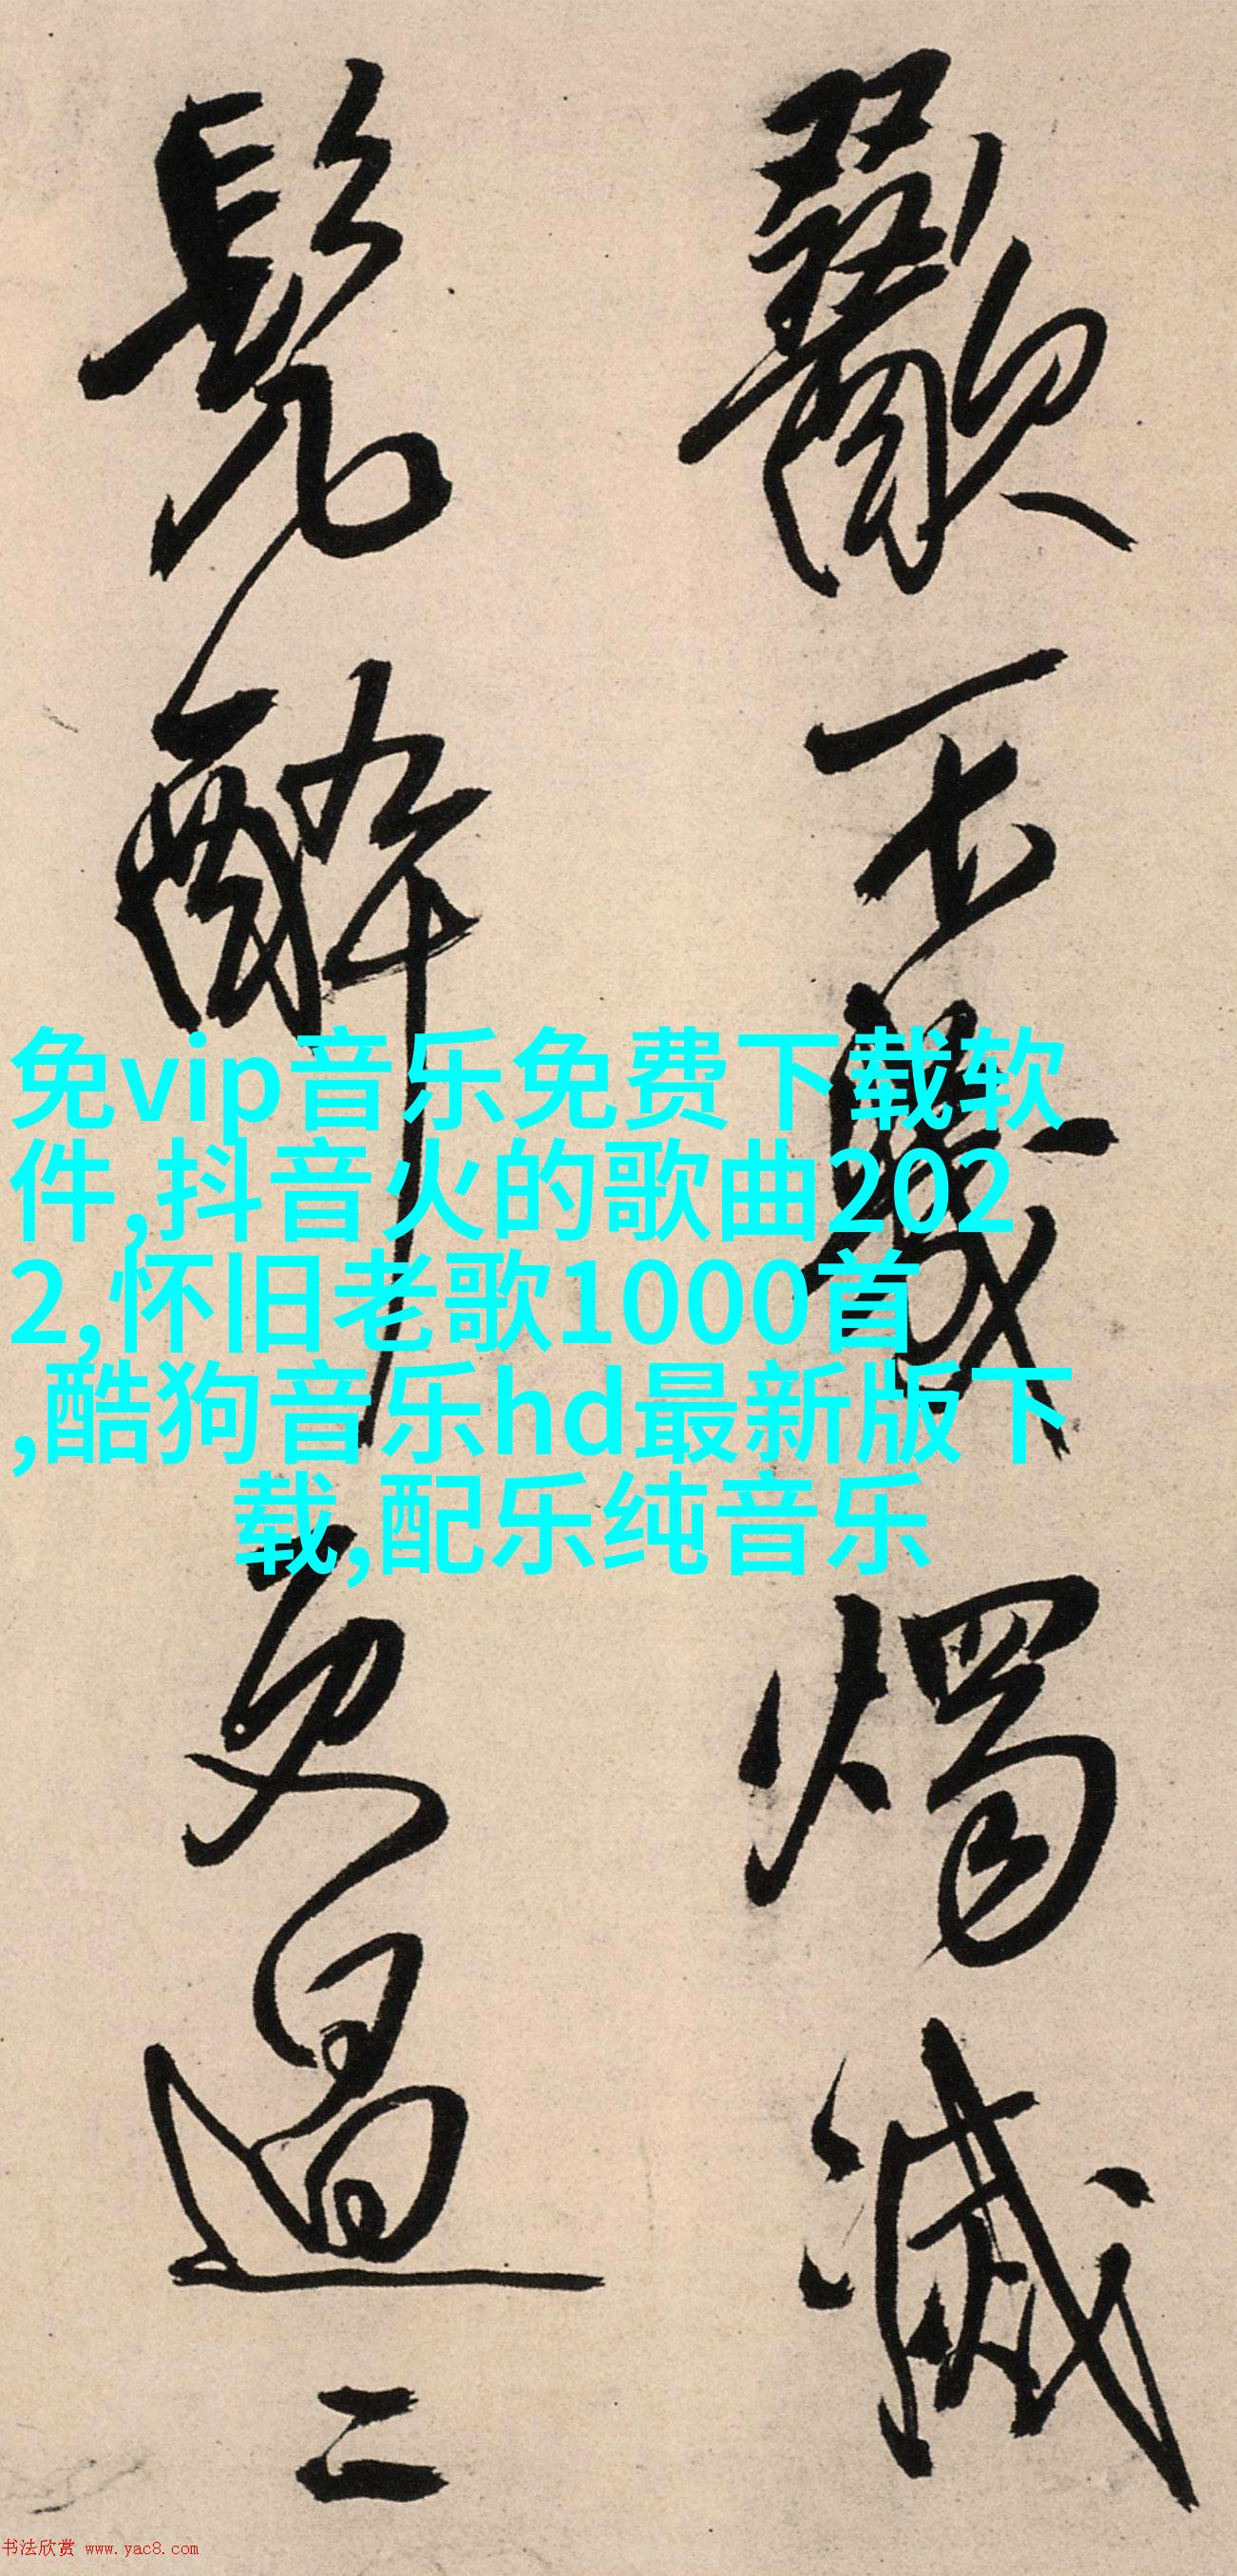 歠不燭滅
髡醉更過二
免vip音乐免费下载软
件,抖音火的歌曲202
2,怀旧老歌1000首
,酷狗音乐hd最新版下
载,配乐纯音乐
书法欣赏 www.yac8.com